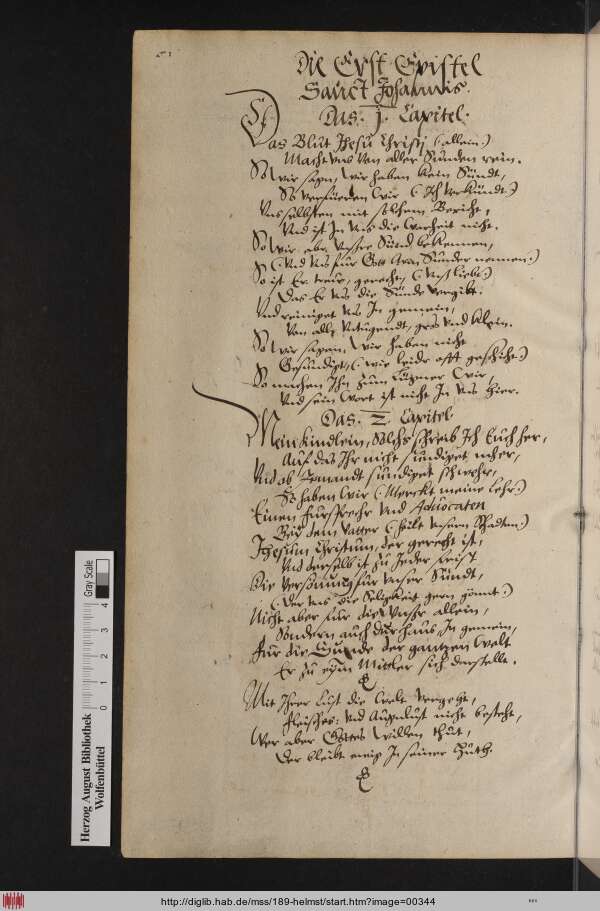 Die Erst Epistel
Sanct Johannis.
Das. I. Capitel.
Das Blut Jhesu Christj (allein:)
Macht vns von aller Sünden rein.
So wir sagen, wir haben kein Sündt,
So verfüeren wir (Ich verkündt:)
Vns selbsten mit solchem Bericht,
Vnd ist In vns die Warheit nicht.
So wir aber vnsere Sünd bekennen,
(Vnd vns für Gott Sünder nennen:)
So ist Er treuw, gerecht, (vnss liebt:)
Das Er vns die Sünde vergibt.
Vnd reiniget vns In gemein,
Von aller Vntugendt, gros vnd klein.
So wir sagen, wir haben nicht
Gesündiget, (wie leider offt geschicht:)
So machen Ihn zum Lügner wir,
Vnd sein Wort ist nicht In vns hier.
Das. 2. Capitel.
Mein kindlein, Solchs schreib Ich Euch her,
Auf das Ihr nicht sündiget mher,
Vnd ob Jemandt sündiget schwehr,
So haben wir (Merckt meine Lehr:)
Einen fürsprechr vnd Aduocaten
Beij dem Vatter (heilt vnsern Schaden:)
Jhesum Christum, der gerecht ist,
Vnd derselb ist zu Jeder frist
Die Versönung für vnser Sündt,
(Der vns die Seligkeit gern gönnt:)
Nicht aber für die vnsere allein,
Sondern auch durchaus In gemein,
Für die Sünde der gantzen Welt
Er zu eym Mittler sich darstellt.
Mit Ihrer Lust die Welt vergeht,
Fleisches: vnd Augenlust nicht besteht,
Wer aber Gottes Willen thut,
Der bleibt ewig In seiner Huth.
Herzog August Bibliothek
Wolfenbüttel
0 1 2 3 4
Gray Scale
http://diglib.hab.de/mss/189-helmst/start.htm?image=00344